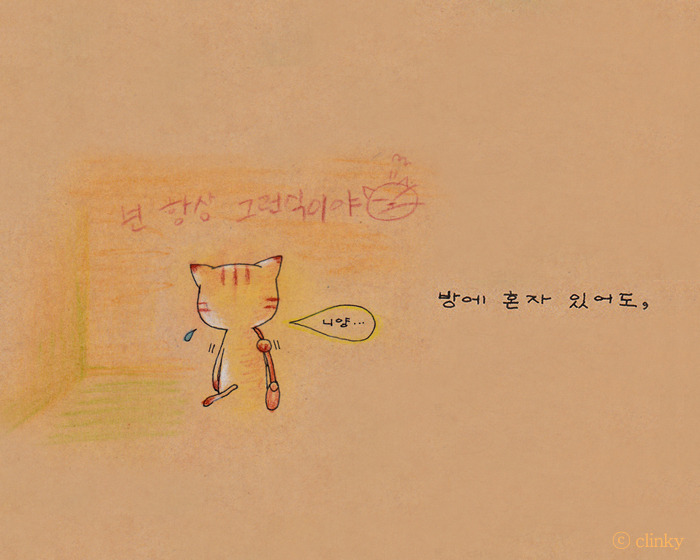 넌 항상 그런식이야
니양...
방에 혼자 있어도,
ⓒ clinky